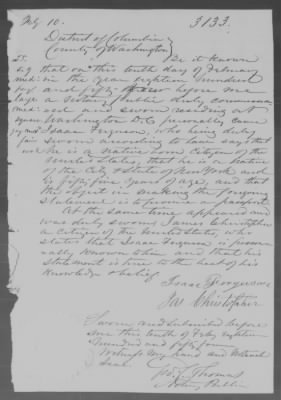 Feb 10. 3133.
District of Columbia
County of Washington
Be it known
that on this tenth day of February
in the Year eighteen hundred
and fifty before me
a Notary Public duly commis
and sworn residing at
Washington D.C. personally came
Isaac Ferguson, who being duly
sworn according to law says that
he is a native born Citizen of the
United States, that he is a native
of the City & State of New York and
is fifty five years of age, and that
the object in making the foregoing
Statement is to procure a passport
At the same time appeared and
was duly sworn James Christopher
a Citizen of the United States, who
states that Isaac Ferguson is person
ally known to him and that his
statement is true to the best of his
Knowledge & belief.
Isaac Ferguson
Jas Christopher
Sworn and Subscribed before
me this tenth of Feby eighteen
hundred and fifty four
Witness my hand and Notarial
Seal.
Thomas
Notary Public